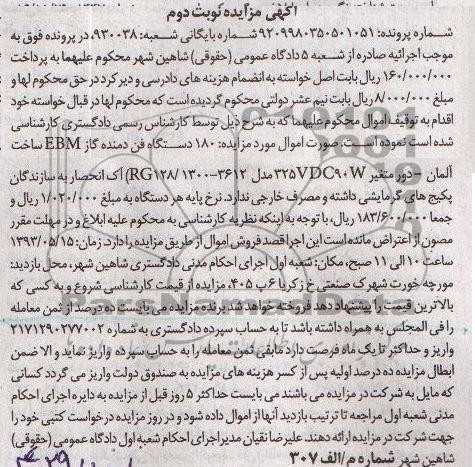 آگهی مزایده نوبت دوم
شماره پرونده: ۹۲۰۹۹۸۰۳۵۰۵۰۱۰۵۱ شماره بایگانی شعبه: ۹۳۰۰۳۸، در پرونده فوق به
موجب اجرائیه صادره از شعبه ۵ دادگاه عمومی (حقوقی) شاهین شهر محکوم علیهما به پرداخت
۱۶۰/۰۰۰/۰۰۰ ریال بابت اصل خواسته به انضمام هزینه های دادرسی و دیرکرد در حق محکوم لها و
مبلغ ۸/۰۰۰/۰۰۰ ریال بابت نیم عشر دولتی محکوم گردیده است که محکوم لها در قبال خواسته خود
اقدام به توقیف اموال محکوم علیهما که به شرح ذیل توسط کارشناس رسمی دادگستری کارشناسی
شده است نموده است. صورت اموال مورد مزایده: ۱۸۰ دستگاه فن دمنده گاز EBM ساخت
آلمان – دور متغیر ۳۲۵VDC۹۰W مدل RG۱۲۸/۱۳۰۰-۳۶۱۲) آک انحصار به سازندگان
پکیج های گرمایشی داشته و مصرف خارجی ندارد. نرخ پایه هر دستگاه به مبلغ ۱/۰۲۰/۰۰۰ ریال و
جمعا ۱۸۳/۶۰۰/۰۰۰ ریال، با توجه به اینکه نظریه کارشناسی به محکوم علیه ابلاغ و در مهلت مقرر
مصون از اعتراض مانده است این اجرا قصد فروش اموال از طریق مزایده را دارد. زمان: ۱۳۹۳/۰۵/۱۵
ساعت ۱۰ الی ۱۱ صبح، مکان: شعبه اول اجرای احکام مدنی دادگستری شاهین شهر، محل بازدید:
مورچه خورت شهرک صنعتی خ زکریا ۶ پ ۴۰۵. مزایده از قیمت کارشناسی شروع و به کسی که
بالاترین قیمت را پیشنهاد دهد فروخته خواهد شد. برنده مزایده می بایست ده درصد از ثمن معامله
را فی المجلس به همراه داشته باشد تا به حساب سپرده دادگستری به شماره ۲۱۷۱۲۹۰۲۷۷۰۰۲
واریز و حداکثر تا یک ماه فرصت دارد مابقی ثمن معامله را به حساب سپرده واریز نماید و الا ضمن
ابطال مزایده ده درصد اولیه پس از کسر هزینه های مزایده به صندوق دولت واریز می گردد کسانی
که مایل به شرکت در مزایده می باشند می بایست حداکثر ۵ روز قبل از مزایده به دایره اجرای احکام
مدنی شعبه اول مراجعه تا ترتیب بازدید آنها از اموال داده شود و در روز مزایده درخواست کتبی خود را
جهت شرکت در مزایده ارائه دهند. علیرضا نقیان مدیر اجرای احکام شعبه اول دادگاه عمومی (حقوقی)
شاهین شهر شماره م/الف ۳۰۷